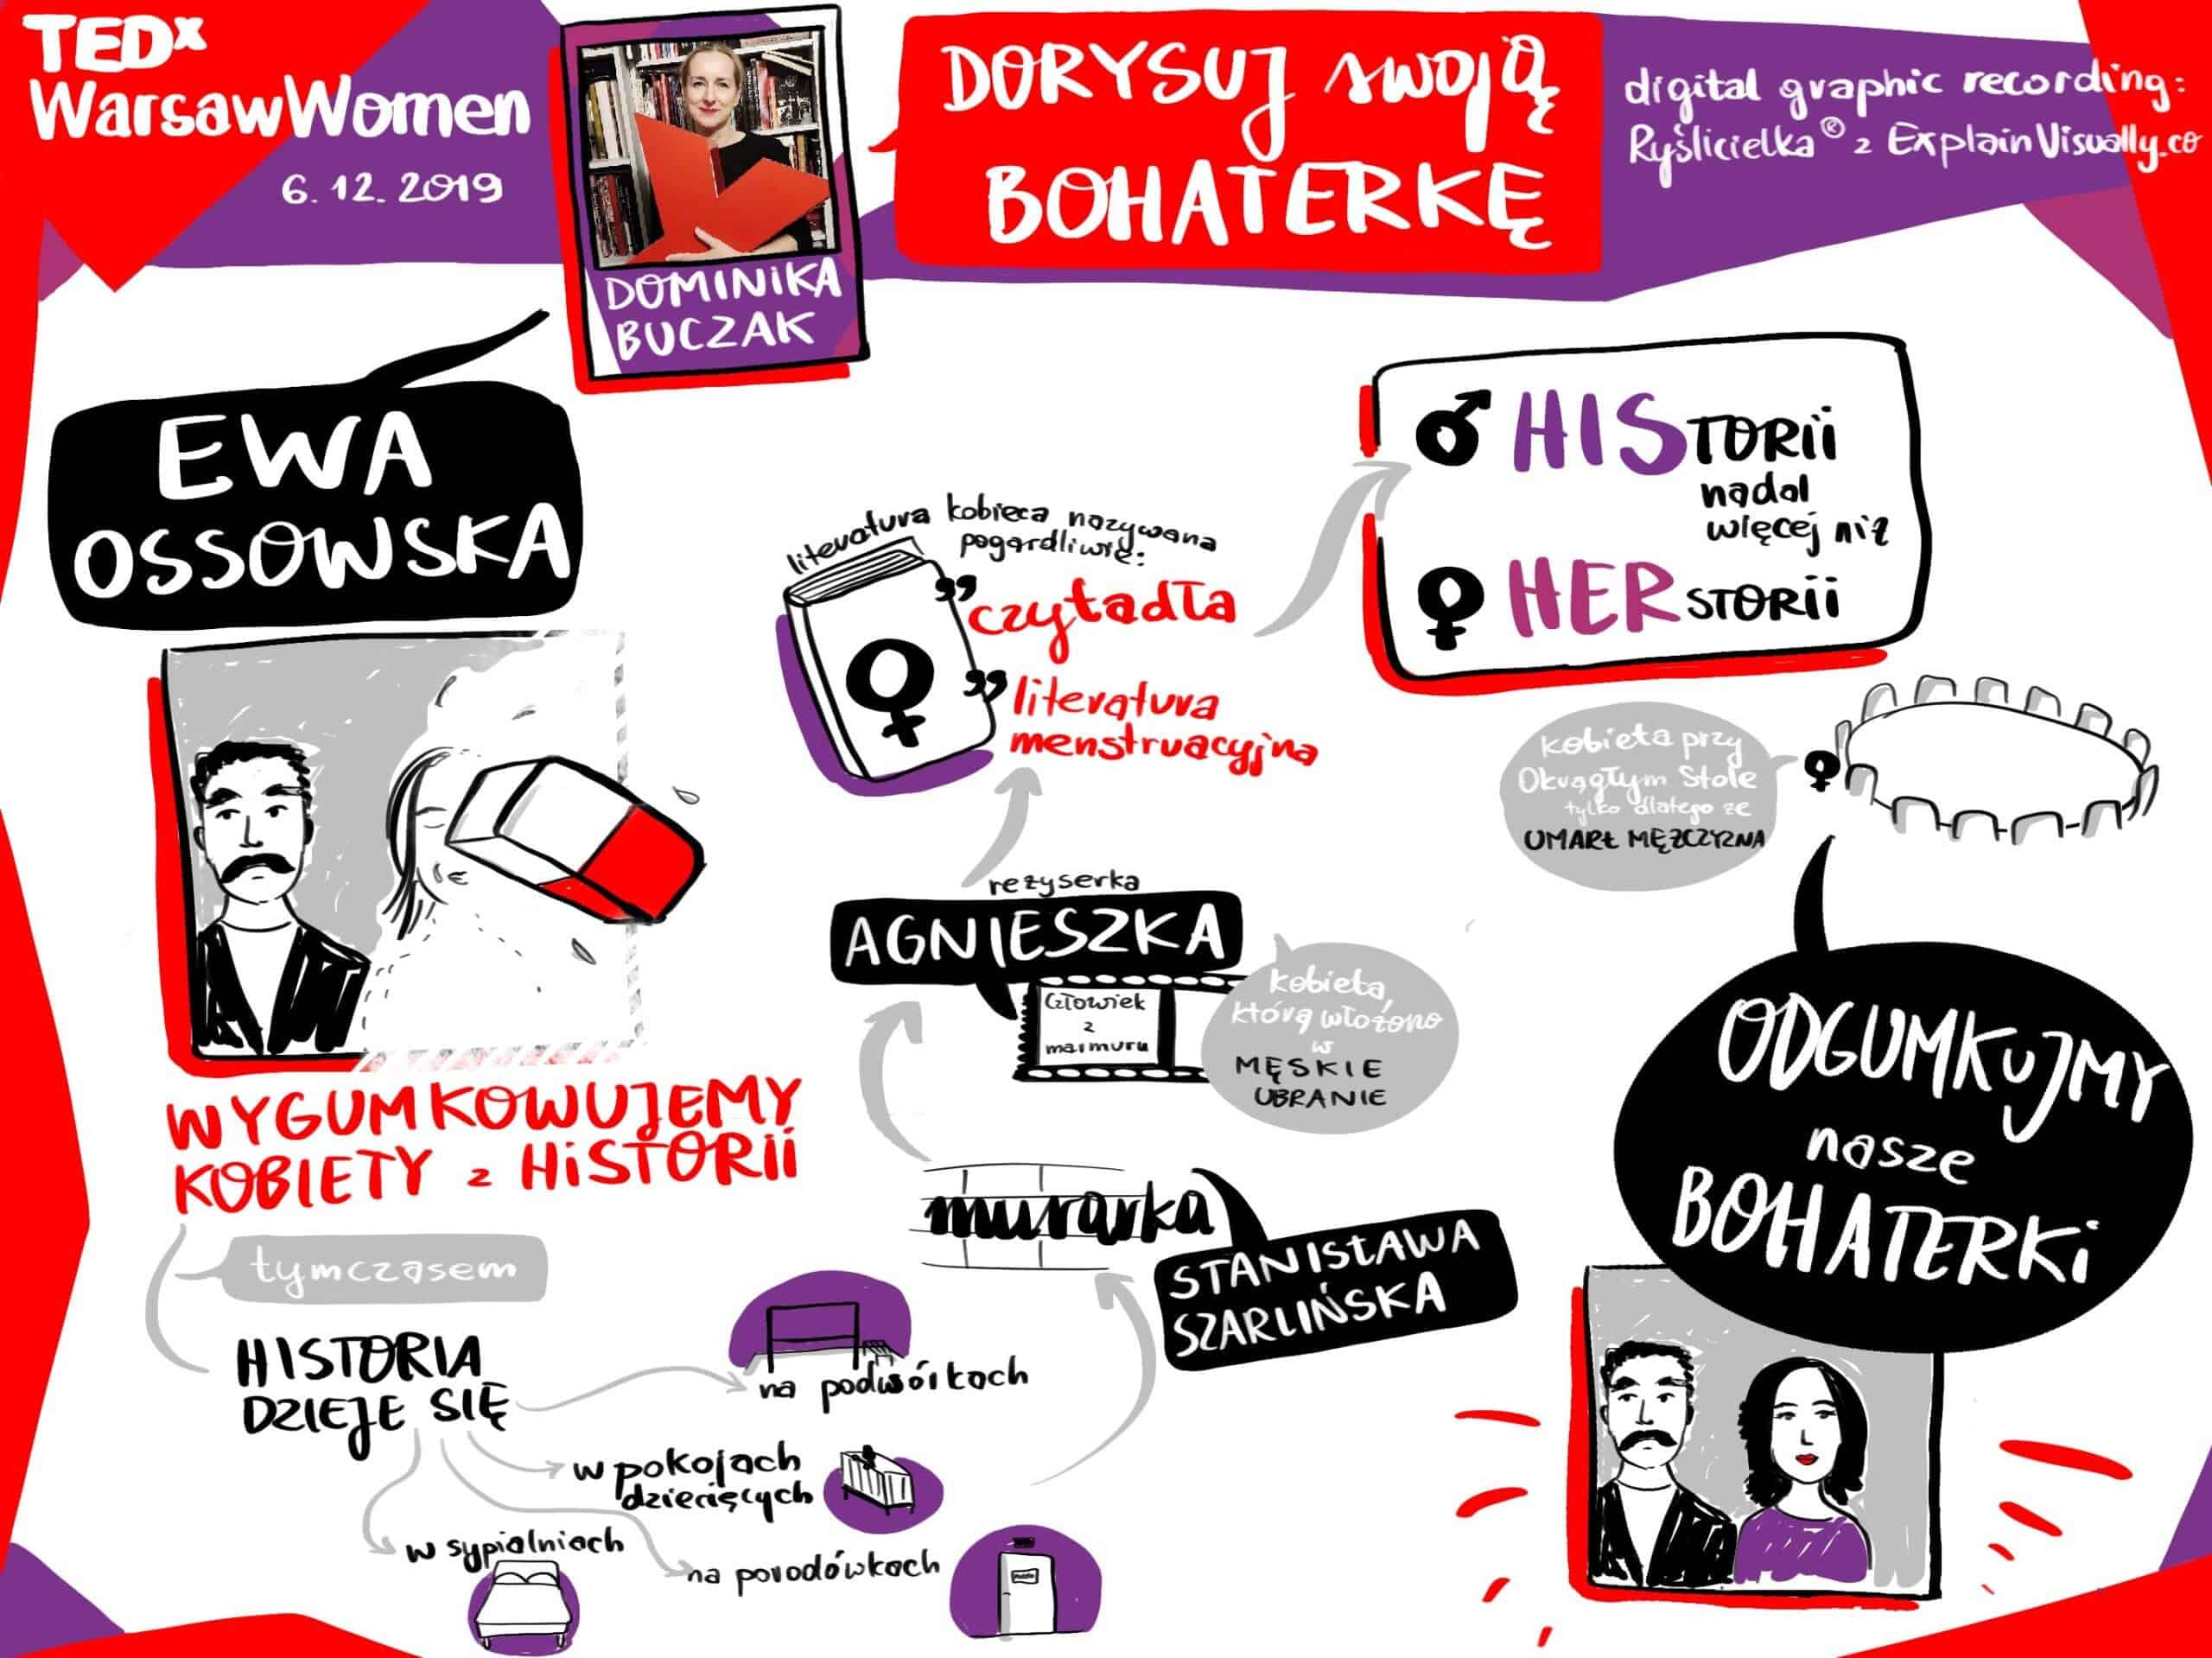 TEDx
WarsawWomen
6. 12. 2019
DOMINIKA
BUCZAK
DORYSUJ swoją
BOHATERKĘ
digital graphic recording:
Ryślicielka® z ExplainVisually.co
EWA
OSSOWSKA
WYGUMKOWUJEMY
KOBIETY z HISTORII
tymczasem
HISTORIA
DZIEJE SIĘ
na podwórkach
w pokojach
dziecięcych
w sypialniach
na porodówkach
murarka
STANISŁAWA
SZARLIŃSKA
reżyserka
AGNIESZKA
Człowiek
z
marmuru
kobieta,
którą włożono
w
MĘSKIE
UBRANIE
literatura kobieca nazywana
pogardliwie:
”czytadła
”literatura
menstruacyjna
♂ HISTORII
nadal
więcej niż
♀ HERSTORII
kobieta przy
Okrągłym Stole
tylko dlatego że
UMARŁ MĘŻCZYZNA
ODGUMKUJMY
nasze
BOHATERKI